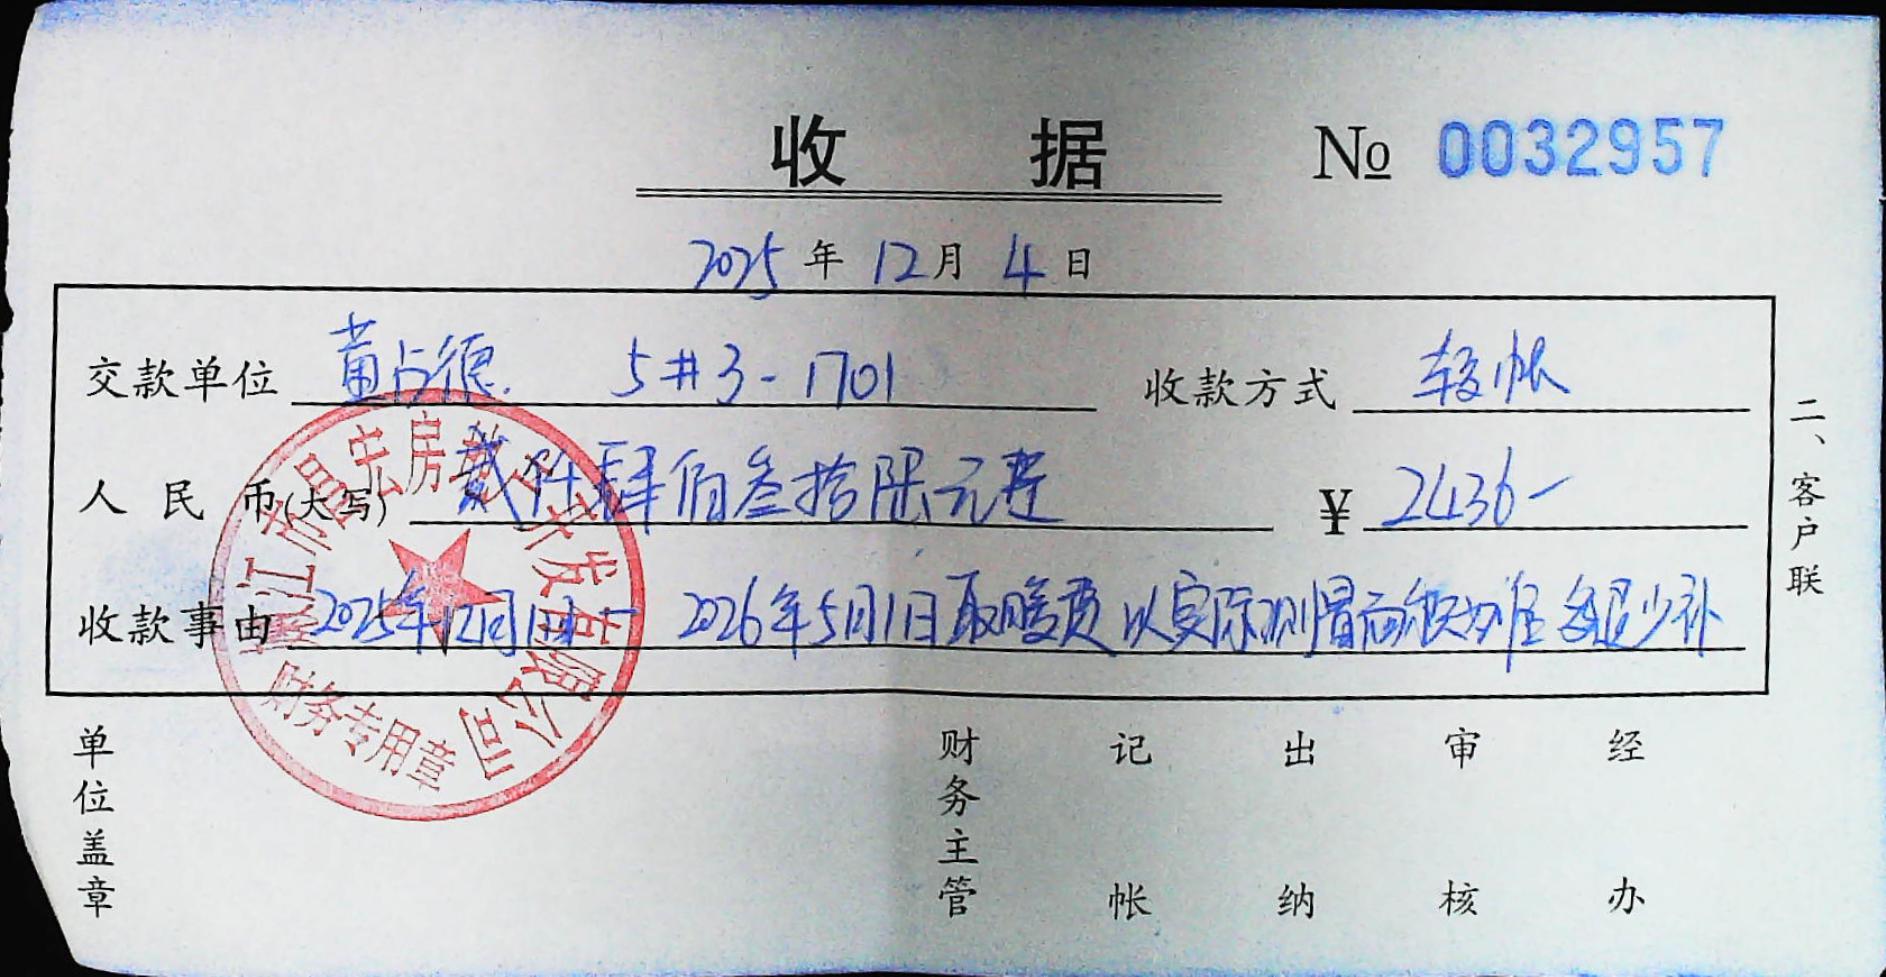 收 据 № 0032957
2025 年 12 月 4 日
交款单位 黄占德. 5#3-1701 收款方式 转帐
人民币(大写) 贰仟肆佰叁拾陆元整 ¥ 2436-
收款事由 2025年12月1日- 2026年5月1日取暖费 以实际测量面积为准 多退少补
二、客户联
江市昌宏房地产开发有限公司
财务专用章
单位盖章 财务主管 记帐 出纳 审核 经办